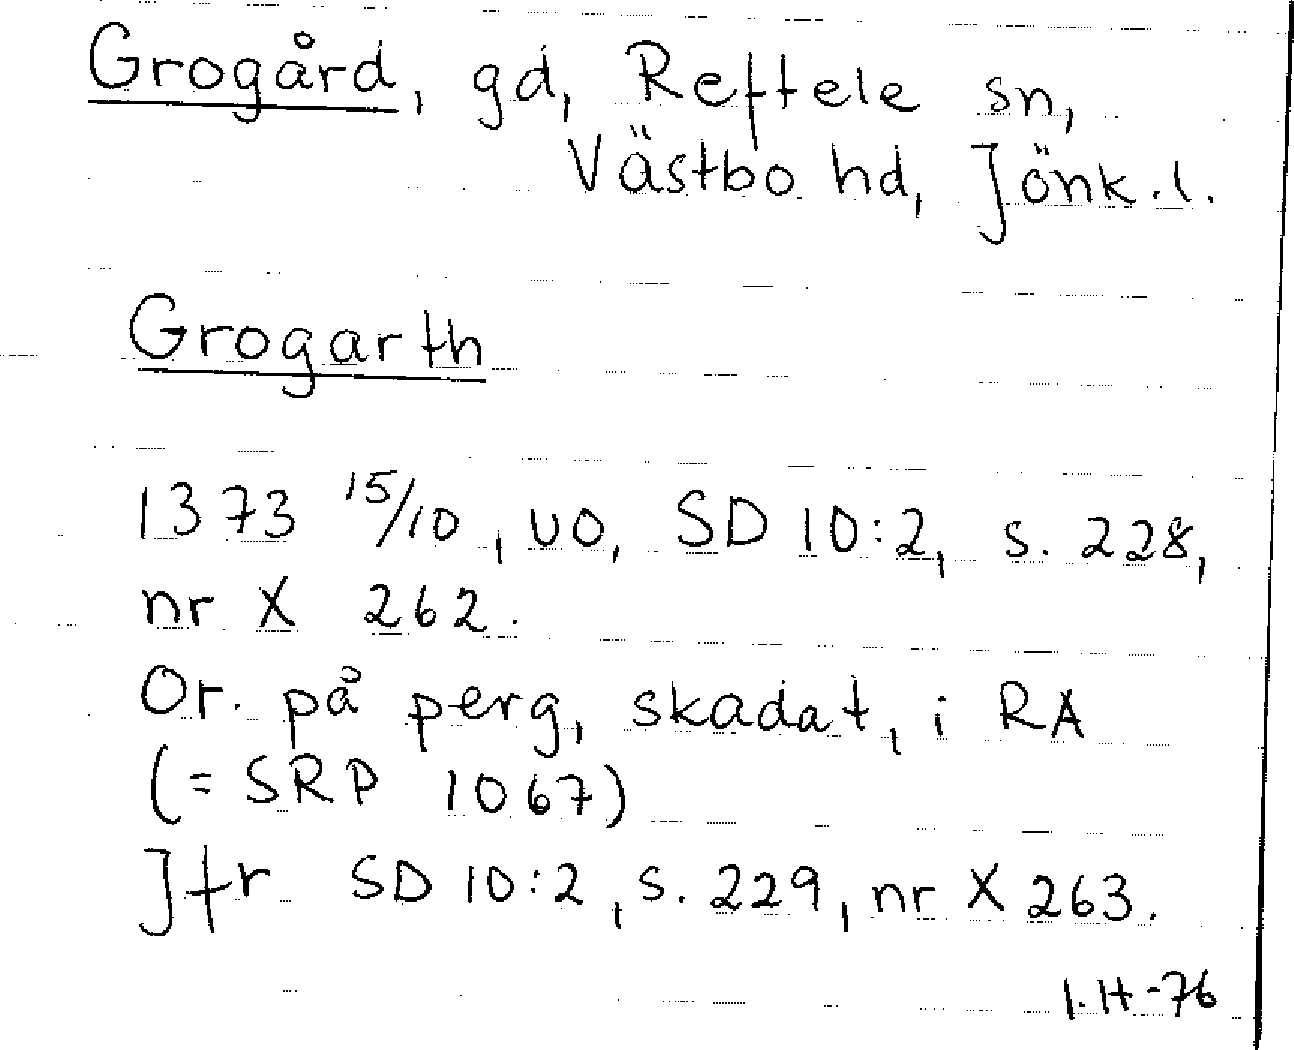 Grogård, gd, Reftele sn,
Västbo hd, Jönk.l.
Grogarth
1373 15/10, uo, SD 10:2, s. 228,
nr X 262.
Or. på perg, skadat, i RA
(= SRP 1067)
Jfr SD 10:2, s. 229, nr X 263.
I.H-76